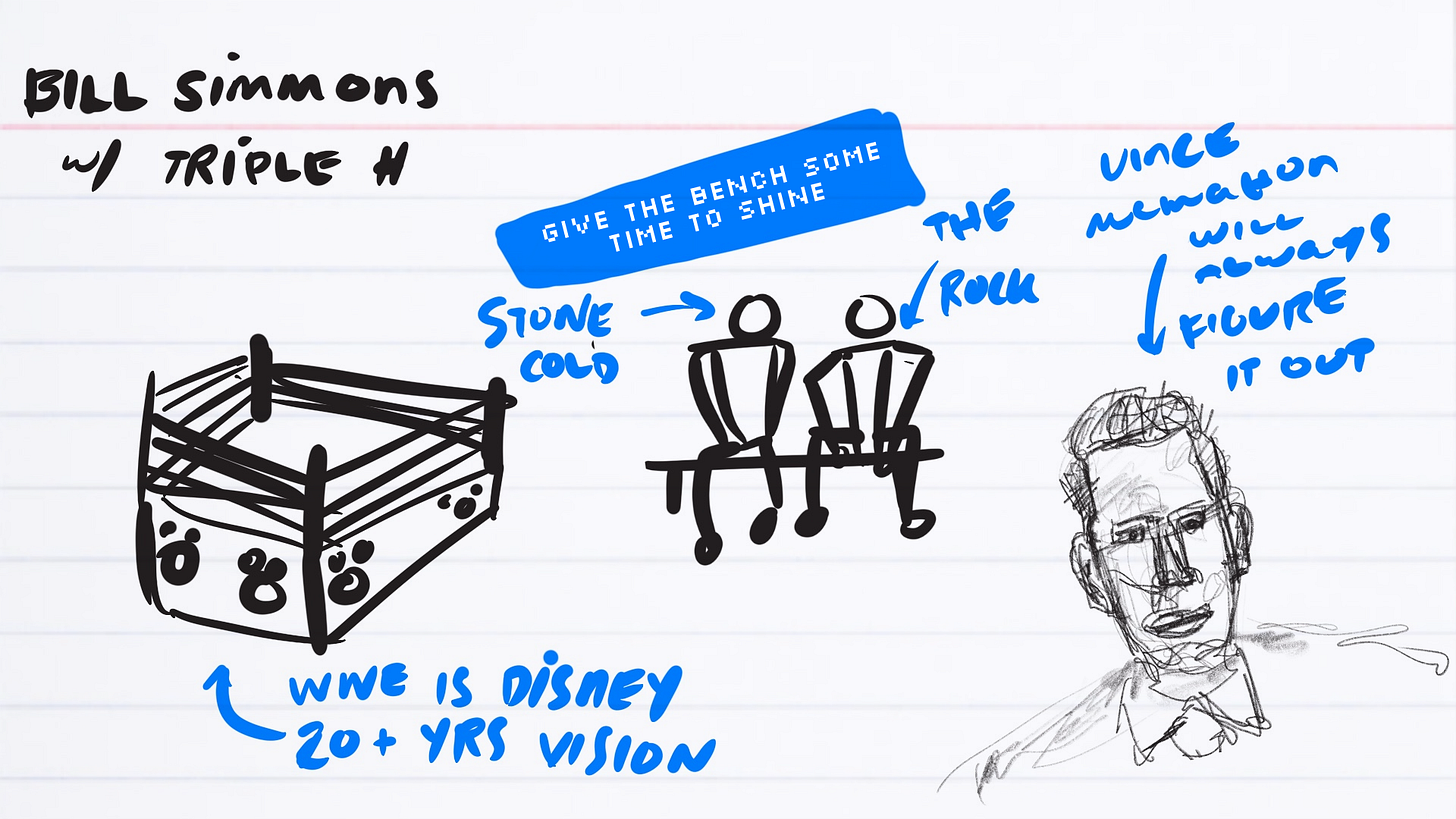 BILL Simmons
w/ TRIPLE H
GIVE THE BENCH SOME
TIME TO SHINE
STONE
COLD
THE
ROCK
VINCE
McMAHON
WILL
ALWAYS
FIGURE
IT OUT
WWE IS DISNEY
20+ YRS VISION